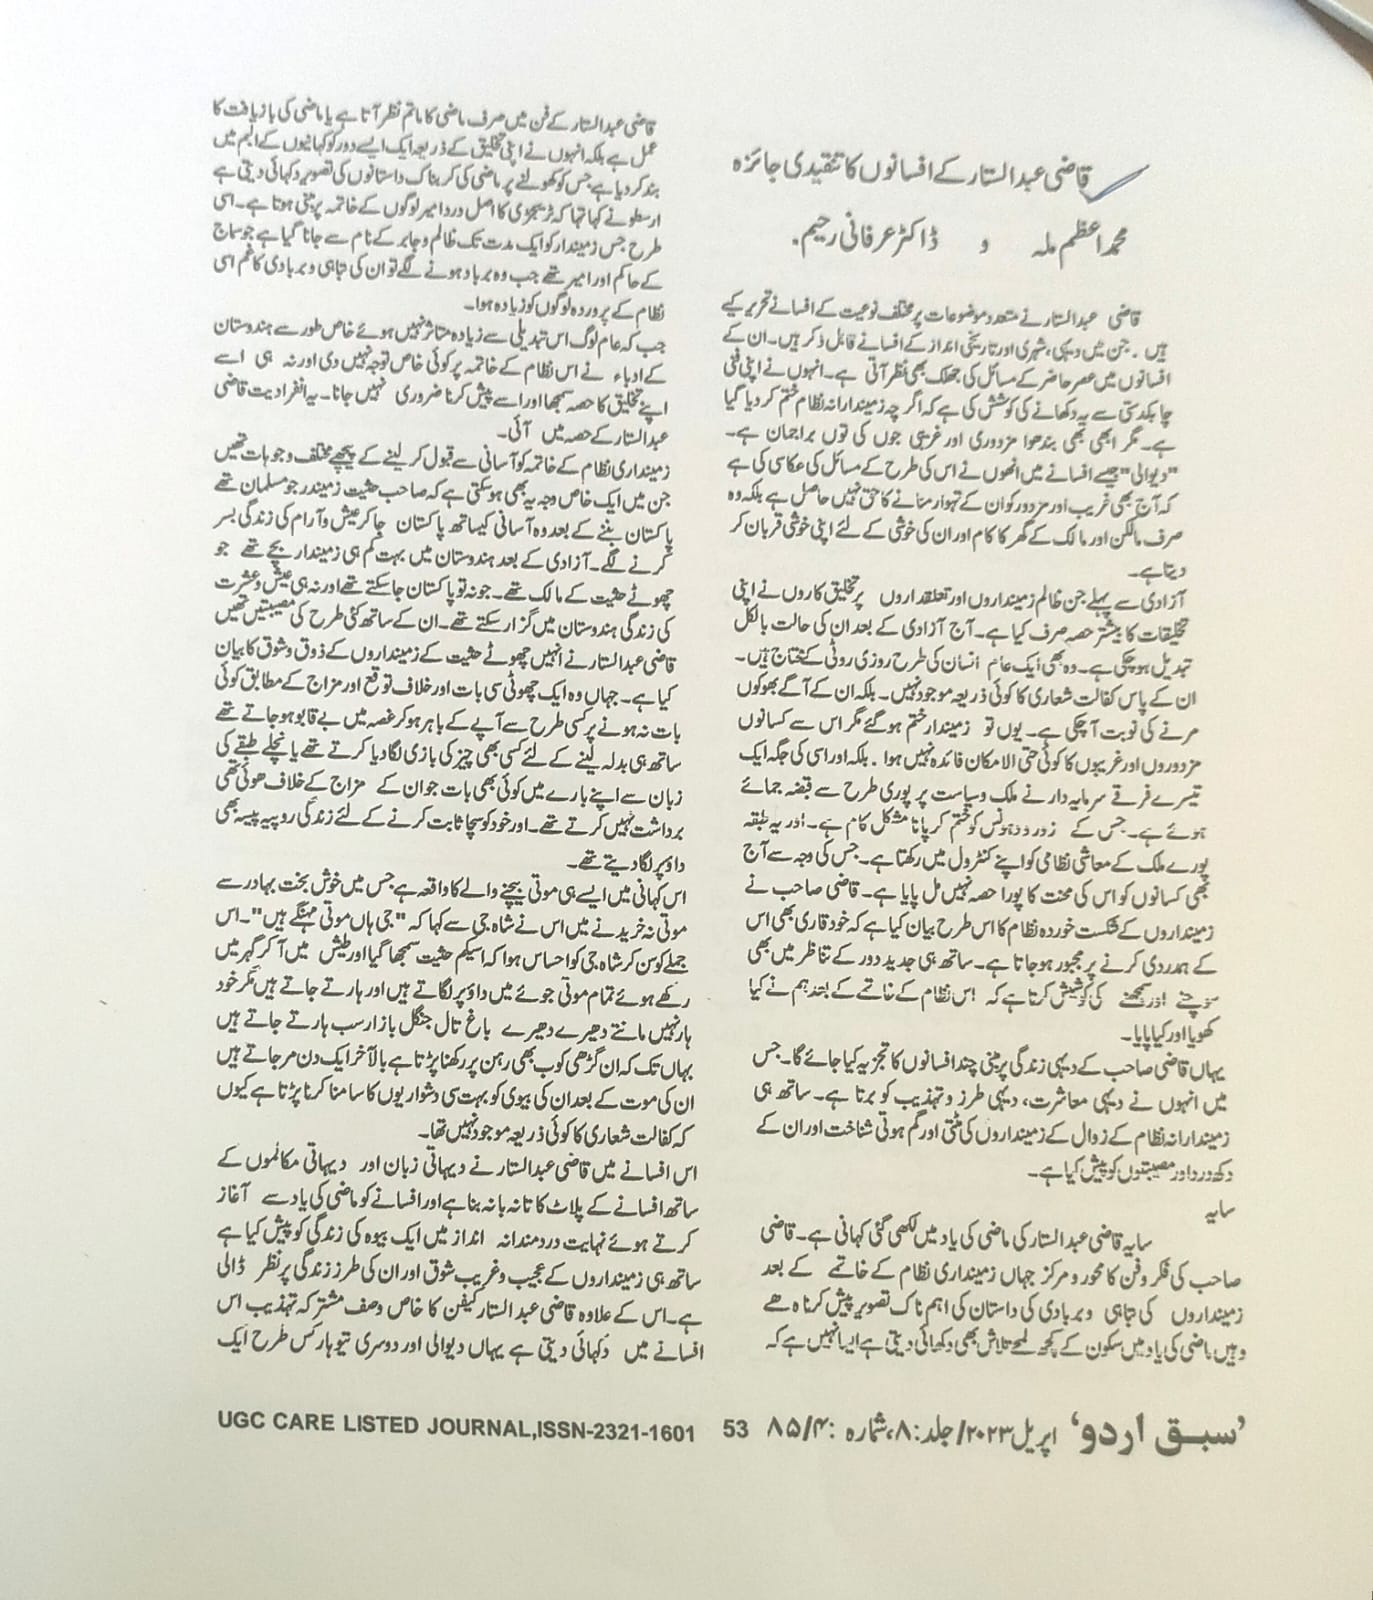 قاضی عبدالستار کے افسانوں کا تنقیدی جائزہ
محمد اعظم ملہ و ڈاکٹر عرفانی رحیم.
قاضی عبدالستار نے متعدد موضوعات پر مختلف نوعیت کے افسانے تحریر کیے
ہیں . جن میں دیہی، شہری اور تاریخی انداز کے افسانے قابل ذکر ہیں۔ ان کے
افسانوں میں عصر حاضر کے مسائل کی جھلک بھی نظر آتی ہے۔ انہوں نے اپنی فنی
چابکدستی سے یہ دکھانے کی کوشش کی ہے کہ اگر چہ زمیندارانہ نظام ختم کر دیا گیا
ہے۔ مگر ابھی بھی بندھوا مزدوری اور غریبی جوں کی توں براجمان ہے۔
"دیوالی" جیسے افسانے میں انھوں نے اس کی طرح کے مسائل کی عکاسی کی ہے
کہ آج بھی غریب اور مزدور کو ان کے تہوار منانے کا حق نہیں حاصل ہے بلکہ وہ
صرف مالکن اور مالک کے گھر کا کام اور ان کی خوشی کے لئے اپنی خوشی قربان کر
دیتا ہے۔
آزادی سے پہلے جن ظالم زمینداروں اور تعلقداروں پر تخلیق کاروں نے اپنی
تخلیقات کا بیشتر حصہ صرف کیا ہے۔ آج آزادی کے بعد ان کی حالت بالکل
تبدیل ہو چکی ہے۔ وہ بھی ایک عام انسان کی طرح روزی روٹی کے محتاج ہیں۔
ان کے پاس کفالت شعاری کا کوئی ذریعہ موجود نہیں۔ بلکہ ان کے آگے بھوکوں
مرنے کی نوبت آ چکی ہے۔ یوں تو زمیندار ختم ہو گئے مگر اس سے کسانوں
مزدوروں اور غریبوں کا کوئی حتی الامکان فائدہ نہیں ہوا . بلکہ اور اسی کی جگہ ایک
تیسرے فرقے سرمایہ دار نے ملک و سیاست پر پوری طرح سے قبضہ جمائے
ہوئے ہے۔ جس کے زور و دہونس کو ختم کر پانا مشکل کام ہے۔ اور یہ طبقہ
پورے ملک کے معاشی نظامی کو اپنے کنٹرول میں رکھتا ہے۔ جس کی وجہ سے آج
بھی کسانوں کو اس کی محنت کا پورا حصہ نہیں مل پایا ہے۔ قاضی صاحب نے
زمینداروں کے شکست خوردہ نظام کا اس طرح بیان کیا ہے کہ خود قاری بھی اس
کے ہمدردی کرنے پر مجبور ہو جاتا ہے۔ ساتھ ہی جدید دور کے تناظر میں بھی
سوچنے اور سمجھنے کی کوشیش کرتا ہے کہ اس نظام کے خاتمے کے بعد ہم نے کیا
کھویا اور کیا پایا۔
یہاں قاضی صاحب کے دیہی زندگی پر مبنی چند افسانوں کا تجزیہ کیا جائے گا۔ جس
میں انہوں نے دیہی معاشرت، دیہی طرز و تہذیب کو برتا ہے۔ ساتھ ہی
زمیندارانہ نظام کے زوال کے زمینداروں کی مٹتی اور گم ہوتی شناخت اور ان کے
دکھ درد اور مصیبتوں کو پیش کیا ہے۔
سایہ
سایہ قاضی عبدالستار کی ماضی کی یاد میں لکھی گئی کہانی ہے۔ قاضی
صاحب کی فکر و فن کا محور و مرکز جہاں زمینداری نظام کے خاتمے کے بعد
زمینداروں کی تباہی و بربادی کی داستان کی اہم ناک تصویر پیش کرنا ہے
وہیں ماضی کی یاد میں سکون کے کچھ لمحے تلاش بھی دکھائی دیتی ہے ایسا نہیں ہے کہ
قاضی عبدالستار کے فن میں صرف ماضی کا ماتم نظر آتا ہے یا ماضی کی بازیافت کا
عمل ہے بلکہ انہوں نے اپنی تخلیق کے ذریعہ ایک ایسے دور کو کہانیوں کے البم میں
بند کر دیا ہے جس کو کھولنے پر ماضی کی کربناک داستانوں کی تصویر دکہائی دیتی ہے
ارسطو نے کہا تہا کہ ٹریجڑی کا اصل درد امیر لوگوں کے خاتمہ پر بنتی ہوتا ہے۔ اسی
طرح جس زمیندار کو ایک مدت تک ظالم و جابر کے نام سے جانا گیا ہے جو سماج
کے حاکم اور امیر تھے جب وہ برباد ہونے لگے تو ان کی تباہی و بربادی کا غم اسی
نظام کے پروردہ لوگوں کو زیادہ ہوا۔
جب کہ عام لوگ اس تبدیلی سے زیادہ متاثر نہیں ہوئے خاص طور سے ہندوستان
کے ادباء نے اس نظام کے خاتمہ پر کوئی خاص توجہ نہیں دی اور نہ ہی اسے
اپنے تخلیق کا حصہ سمجھا اور اسے پیش کرنا ضروری نہیں جانا۔ یہ انفرادیت قاضی
عبدالستار کے حصہ میں آئی۔
زمینداری نظام کے خاتمہ کو آسانی سے قبول کر لینے کے پیچھے مختلف وجوہات تھیں
جن میں ایک خاص وجہ یہ بھی ہو سکتی ہے کہ صاحب حثیت زمیندر جو مسلمان تھے
پاکستان بننے کے بعد وہ آسانی کیساتھ پاکستان جا کر عیش و آرام کی زندگی بسر
کرنے لگے۔ آزادی کے بعد ہندوستان میں بہت کم ہی زمیندار بچے تھے جو
چھوٹے حثیت کے مالک تھے۔ جو نہ تو پاکستان جا سکتے تھے اور نہ ہی عیش و عشرت
کی زندگی ہندوستان میں گزار سکتے تھے۔ ان کے ساتھ کئی طرح کی مصیبتیں تھیں
قاضی عبدالستار نے انہیں چھوٹے حثیت کے زمینداروں کے ذوق و شوق کا بیان
کیا ہے۔ جہاں وہ ایک چھوٹی سی بات اور خلاف توقع اور مزاج کے مطابق کوئی
بات نہ ہونے پر کسی طرح سے آپے کے باہر ہو کر غصہ میں بے قابو ہو جاتے تھے
ساتھ ہی بدلہ لینے کے لئے کسی بھی چیز کی بازی لگا دیا کرتے تھے یا نچلے طبقے کی
زبان سے اپنے بارے میں کوئی بھی بات جو ان کے مزاج کے خلاف ہوتی تھی
برداشت نہیں کرتے تھے۔ اور خود کو سچا ثابت کرنے کے لئے زندگی روپیہ پیسہ بھی
داؤ پر لگا دیتے تھے۔
اس کہانی میں ایسے ہی موتی بیچنے والے کا واقعہ ہے جس میں خوش بخت بہادر سے
موتی نہ خریدنے میں اس نے شاہ جی سے کہا کہ "جی ہاں موتی مہنگے ہیں"۔ اس
جملے کو سن کر شاہ جی کو احساس ہوا کہ اسیکم حثیت سمجھا گیا اور طیش میں آ کر گہر میں
رکھے ہوئے تمام موتی جوئے میں داؤ پر لگاتے ہیں اور ہارتے جاتے ہیں مگر خود
ہار نہیں مانتے دھیرے دھیرے باغ تال جنگل بازار سب ہارتے جاتے ہیں
یہاں تک کہ ان گڑھی کو ب بھی رہن پر رکھنا پڑتا ہے بالآخر ایک دن مر جاتے ہیں
ان کی موت کے بعد ان کی بیوی کو بہت سی دشواریوں کا سامنا کرنا پڑتا ہے کیوں
کہ کفالت شعاری کا کوئی ذریعہ موجود نہیں تھا۔
اس افسانے میں قاضی عبدالستار نے دیہاتی زبان اور دیہاتی مکالموں کے
ساتھ افسانے کے پلاٹ کا تانہ بانہ بنا ہے اور افسانے کو ماضی کی یاد سے آغاز
کرتے ہوئے نہایت دردمندانہ انداز میں ایک بیوہ کی زندگی کو پیش کیا ہے
ساتھ ہی زمینداروں کے عجیب و غریب شوق اور ان کی طرز زندگی پر نظر ڈالی
ہے۔ اس کے علاوہ قاضی عبدالستار کیفن کا خاص وصف مشترکہ تہذیب اس
افسانے میں دکہائی دیتی ہے یہاں دیوالی اور دوسری تیوہار کس طرح ایک
'سبق اردو' اپریل ۲۰۲۳/ جلد: ۸، شمارہ : ۸۵/۴ 53 UGC CARE LISTED JOURNAL,ISSN-2321-1601